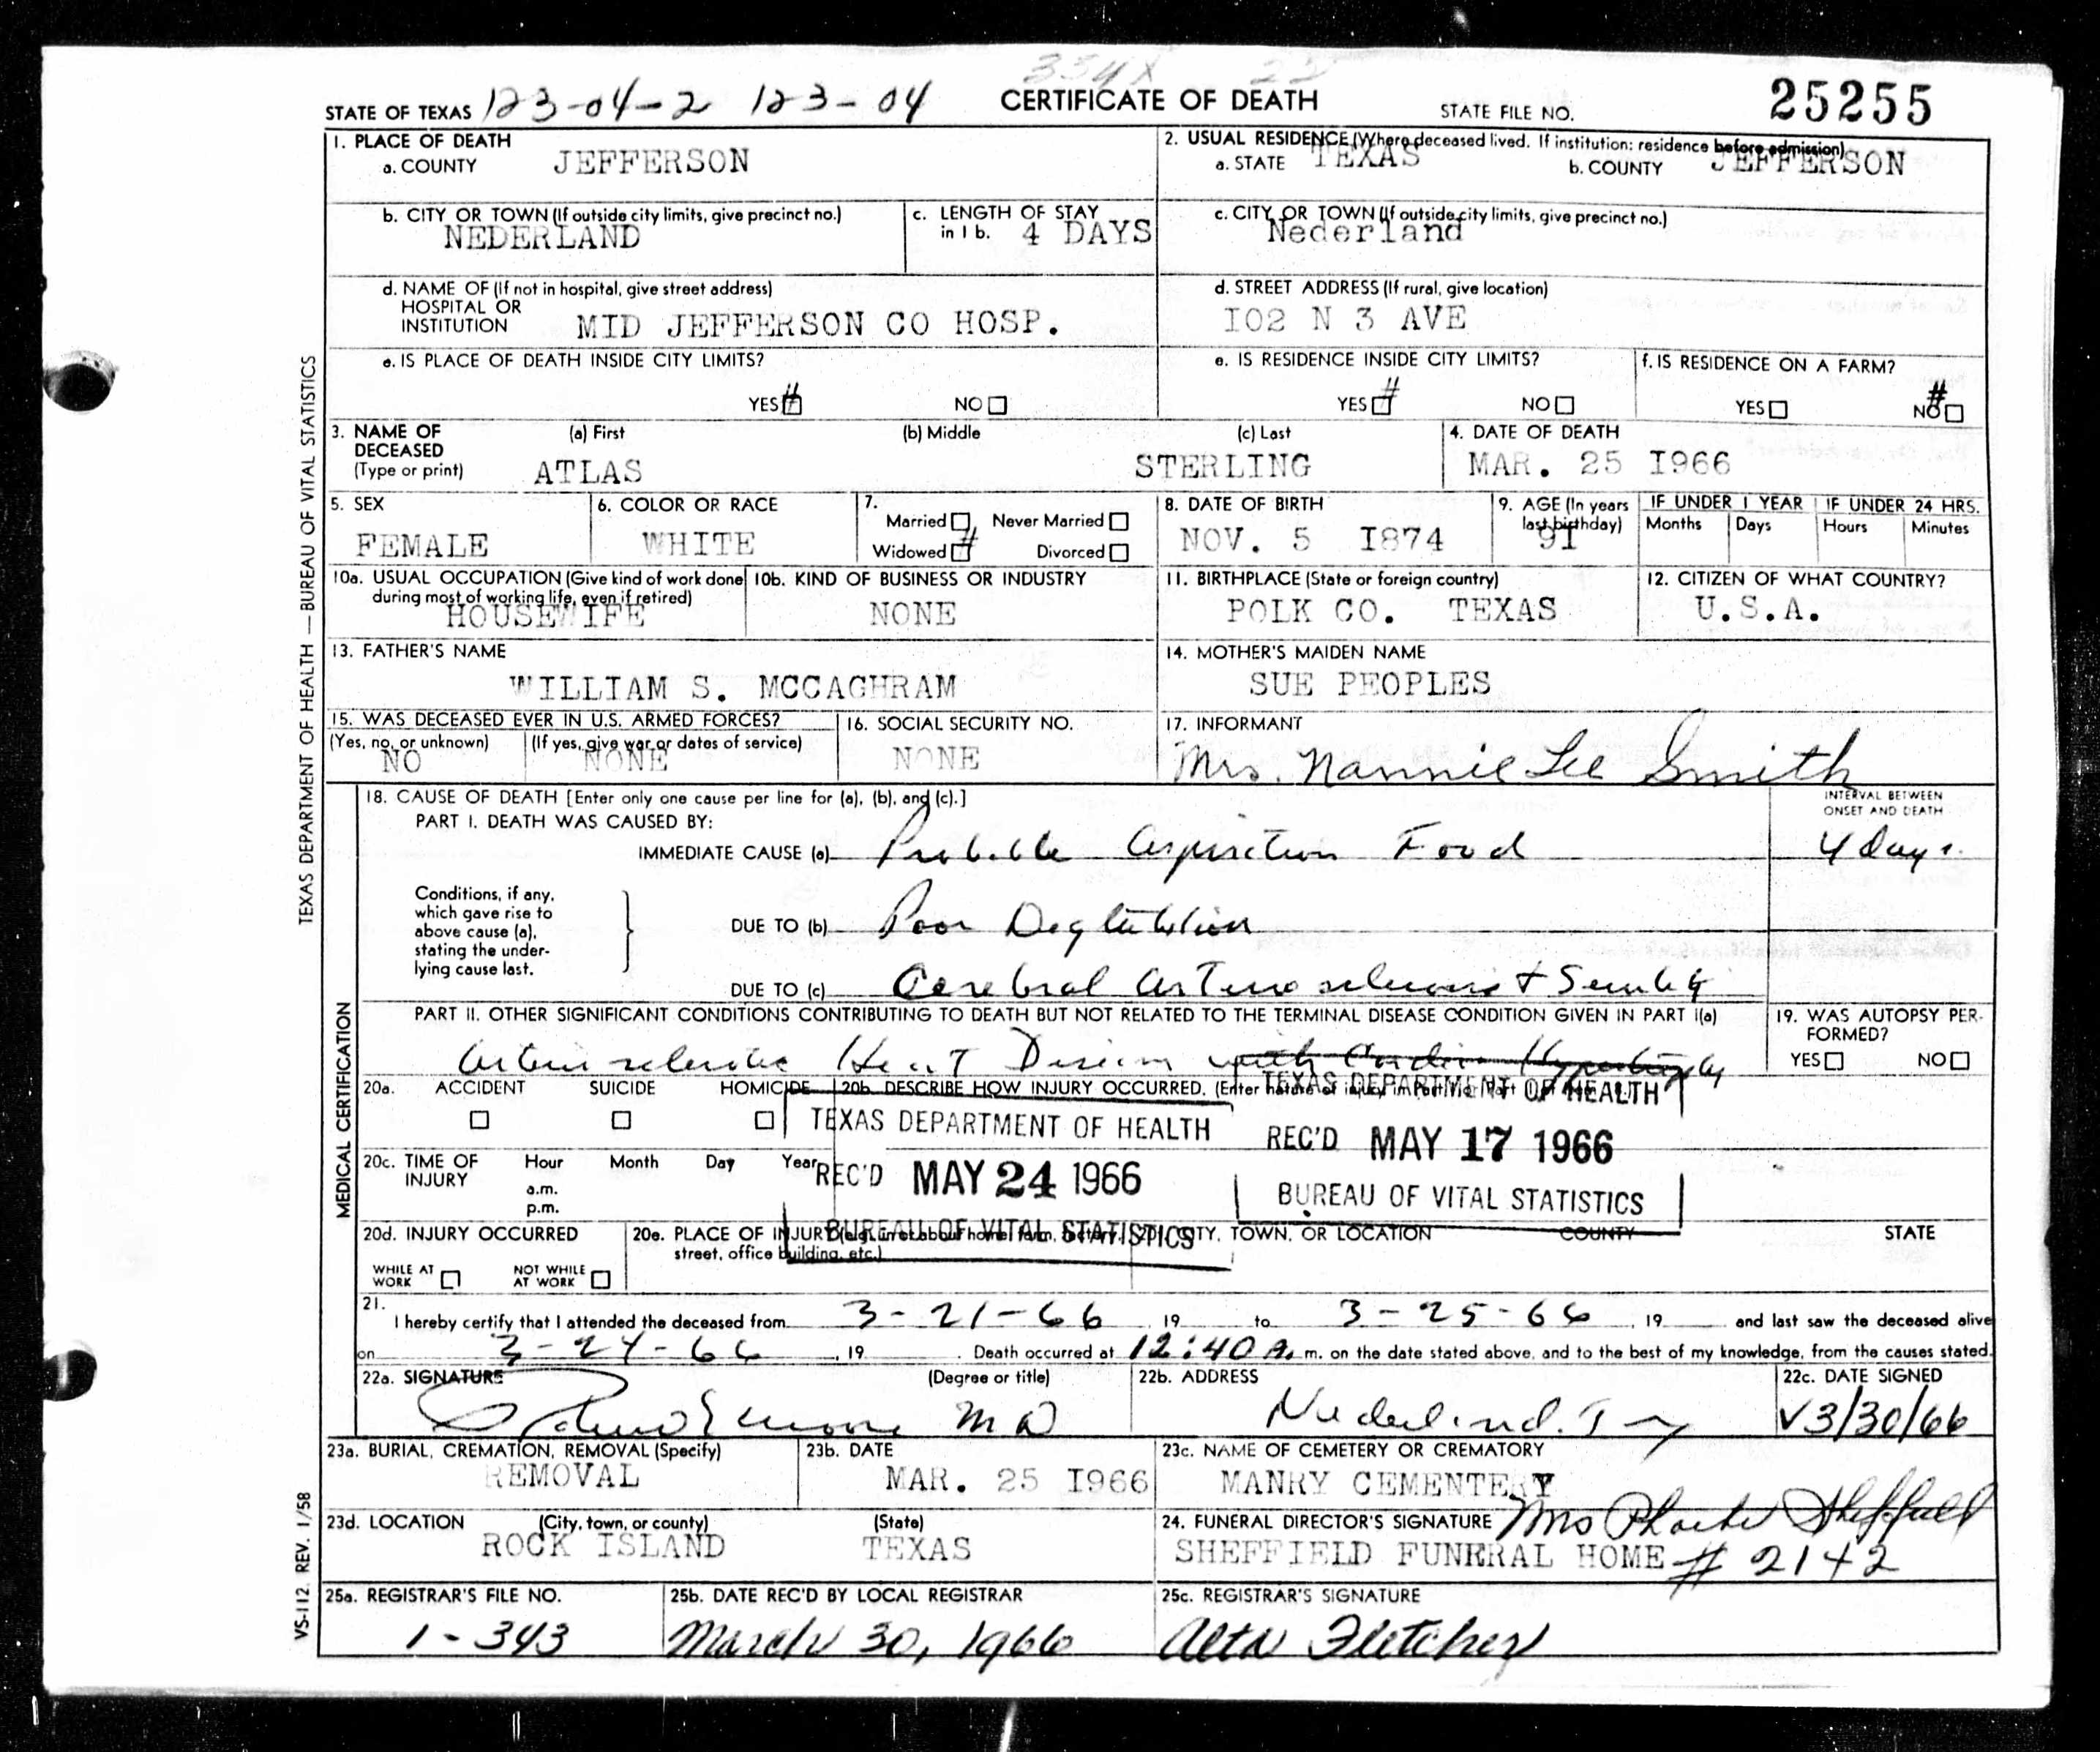 334X 22
STATE OF TEXAS 123-04-2 123-04 CERTIFICATE OF DEATH STATE FILE NO. 25255
1. PLACE OF DEATH
a. COUNTY JEFFERSON
2. USUAL RESIDENCE (Where deceased lived. If institution: residence before admission)
a. STATE TEXAS b. COUNTY JEFFERSON
b. CITY OR TOWN (If outside city limits, give precinct no.)
NEDERLAND
c. LENGTH OF STAY
in 1 b. 4 DAYS
c. CITY OR TOWN (If outside city limits, give precinct no.)
Nederland
d. NAME OF (If not in hospital, give street address)
HOSPITAL OR
INSTITUTION MID JEFFERSON CO HOSP.
d. STREET ADDRESS (If rural, give location)
I02 N 3 AVE
e. IS PLACE OF DEATH INSIDE CITY LIMITS?
YES # NO
e. IS RESIDENCE INSIDE CITY LIMITS?
YES # NO
f. IS RESIDENCE ON A FARM?
YES NO #
3. NAME OF
DECEASED
(Type or print)
(a) First (b) Middle (c) Last
ATLAS STERLING
4. DATE OF DEATH
MAR. 25 I966
5. SEX
FEMALE
6. COLOR OR RACE
WHITE
7.
Married Never Married
Widowed # Divorced
8. DATE OF BIRTH
NOV. 5 I874
9. AGE (In years
last birthday)
9I
IF UNDER 1 YEAR IF UNDER 24 HRS.
Months Days Hours Minutes
10a. USUAL OCCUPATION (Give kind of work done
during most of working life, even if retired)
HOUSEWIFE
10b. KIND OF BUSINESS OR INDUSTRY
NONE
11. BIRTHPLACE (State or foreign country)
POLK CO. TEXAS
12. CITIZEN OF WHAT COUNTRY?
U.S.A.
13. FATHER'S NAME
WILLIAM S. MCCAGHRAM
14. MOTHER'S MAIDEN NAME
SUE PEOPLES
15. WAS DECEASED EVER IN U.S. ARMED FORCES?
(Yes, no, or unknown) (If yes, give war or dates of service)
NO NONE
16. SOCIAL SECURITY NO.
NONE
17. INFORMANT
Mrs. Nannie Lee Smith
18. CAUSE OF DEATH [Enter only one cause per line for (a), (b), and (c).]
PART I. DEATH WAS CAUSED BY:
INTERVAL BETWEEN
ONSET AND DEATH
IMMEDIATE CAUSE (a) Probable Aspiration Food 4 days
Conditions, if any,
which gave rise to
above cause (a),
stating the under-
lying cause last.
DUE TO (b) Poor Deglutition
DUE TO (c) Cerebral Arteriosclerosis + Senility
PART II. OTHER SIGNIFICANT CONDITIONS CONTRIBUTING TO DEATH BUT NOT RELATED TO THE TERMINAL DISEASE CONDITION GIVEN IN PART I(a)
Arteriosclerotic Heart Disease with Cardiac Hypertrophy
19. WAS AUTOPSY PER-
FORMED?
YES NO
20a. ACCIDENT SUICIDE HOMICIDE
20b. DESCRIBE HOW INJURY OCCURRED. (Enter nature of injury in Part I or Part
TEXAS DEPARTMENT OF HEALTH
REC'D MAY 24 1966
BUREAU OF VITAL STATISTICS
TEXAS DEPARTMENT OF HEALTH
REC'D MAY 17 1966
BUREAU OF VITAL STATISTICS
20c. TIME OF
INJURY
Hour Month Day Year
a.m.
p.m.
20d. INJURY OCCURRED
WHILE AT
WORK
NOT WHILE
AT WORK
20e. PLACE OF INJURY (e.g., in or about home, farm, factory,
street, office building, etc.)
CITY, TOWN, OR LOCATION COUNTY STATE
21.
I hereby certify that I attended the deceased from 3-21-66, 19 to 3-25-66, 19 and last saw the deceased alive
on 3-24-66, 19 . Death occurred at 12:40 A. m. on the date stated above, and to the best of my knowledge, from the causes stated.
22a. SIGNATURE (Degree or title)
MD
22b. ADDRESS
Nederland. Tex
22c. DATE SIGNED
√3/30/66
23a. BURIAL, CREMATION, REMOVAL (Specify)
REMOVAL
23b. DATE
MAR. 25 I966
23c. NAME OF CEMETERY OR CREMATORY
MANRY CEMENTERY
23d. LOCATION (City, town, or county) (State)
ROCK ISLAND TEXAS
24. FUNERAL DIRECTOR'S SIGNATURE Mrs Phoebe Sheffield
SHEFFIELD FUNERAL HOME # 2142
25a. REGISTRAR'S FILE NO.
1-343
25b. DATE REC'D BY LOCAL REGISTRAR
March 30, 1966
25c. REGISTRAR'S SIGNATURE
Alta Fletcher
TEXAS DEPARTMENT OF HEALTH — BUREAU OF VITAL STATISTICS
MEDICAL CERTIFICATION
VS-112 REV. 1/58